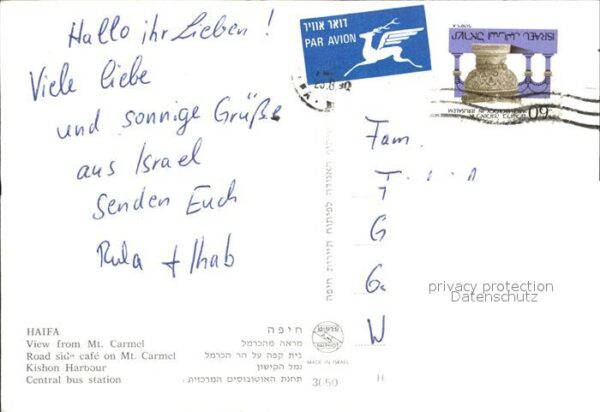 Hallo ihr Lieben!
Viele liebe
und sonnige Grüße
aus Israel
senden Euch
Rula + Ihab
דואר אוויר
PAR AVION
ISRAEL
Fam.
T
G
Ga
W
privacy protection
Datenschutz
HAIFA
View from Mt. Carmel
Road side café on Mt. Carmel
Kishon Harbour
Central bus station
חיפה
מראה מהכרמל
בית קפה על הר הכרמל
נמל הקישון
תחנת האוטובוסים המרכזית
MADE IN ISRAEL
3650
H